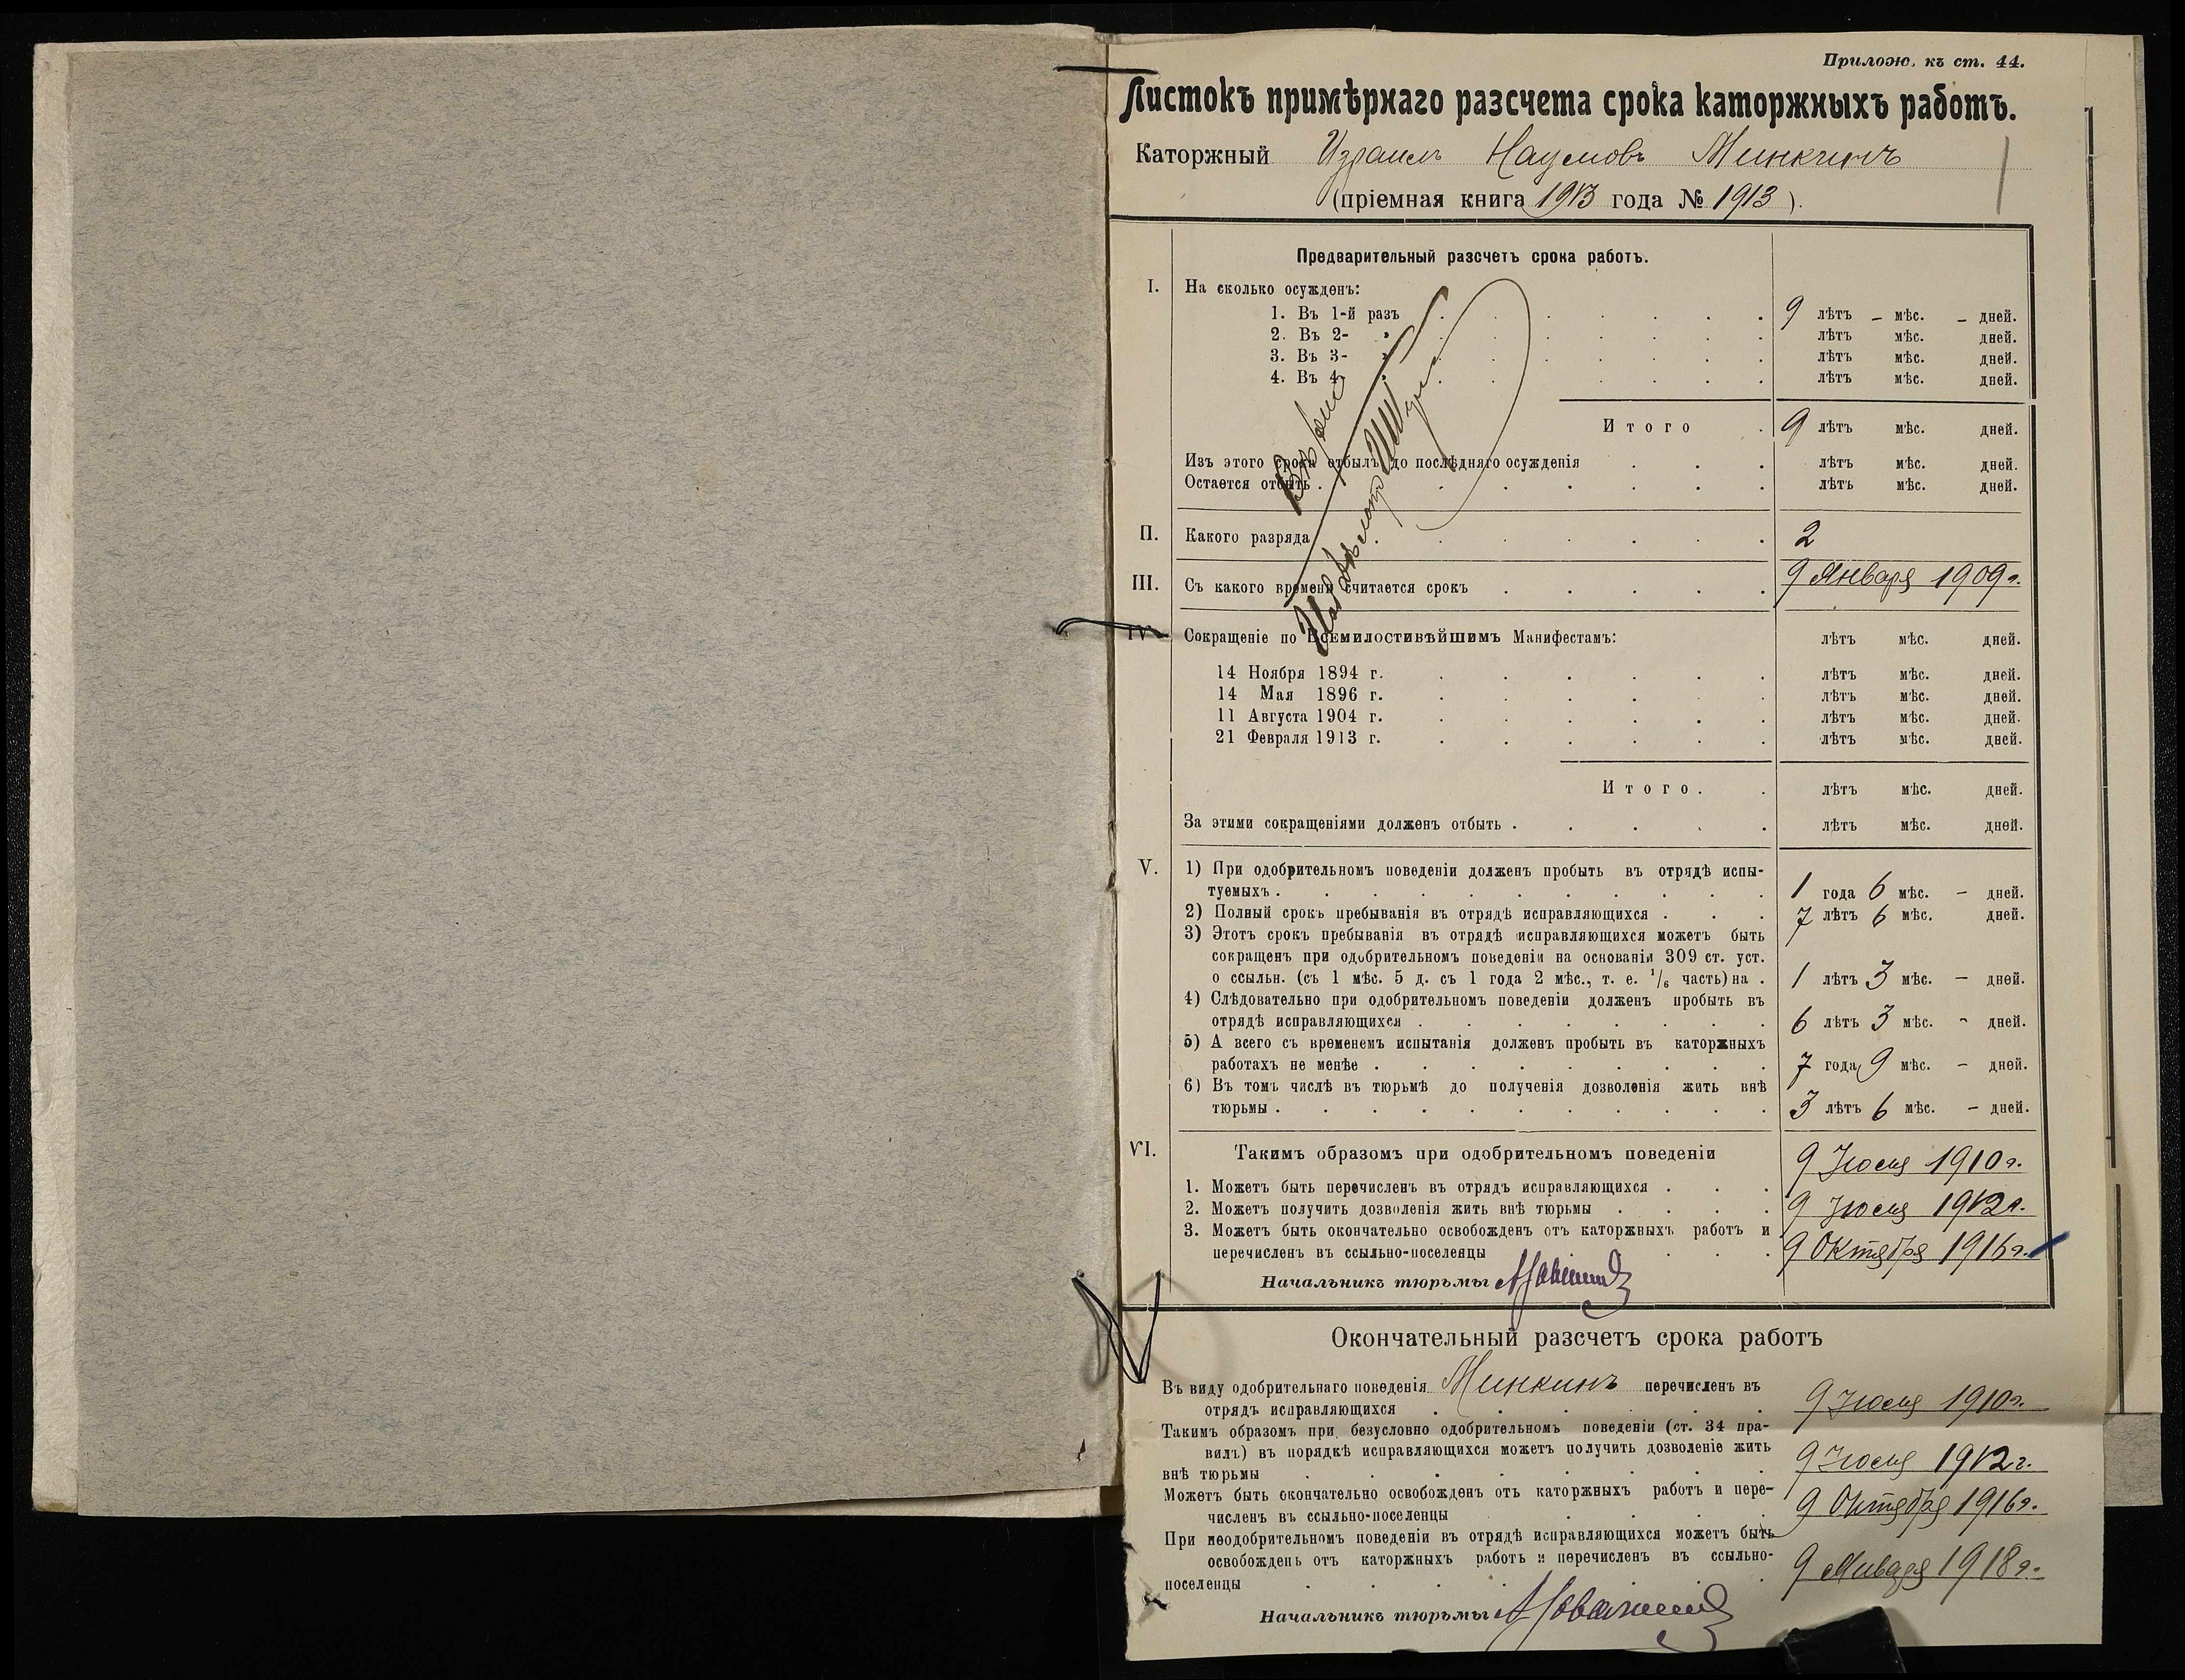 Прилож. къ ст. 44.
Листокъ примѣрнаго разсчета срока каторжныхъ работъ.
Каторжный Израиль Наумовъ Минкинъ
(пріемная книга 1913 года № 1913).
Предварительный разсчетъ срока работъ.
I. На сколько осужденъ:
1. Въ 1-й разъ 9 лѣтъ - мѣс. - дней.
2. Въ 2- " лѣтъ мѣс. дней.
3. Въ 3- " лѣтъ мѣс. дней.
4. Въ 4- лѣтъ мѣс. дней.
Итого 9 лѣтъ мѣс. дней.
Изъ этого срока отбылъ до послѣдняго осужденія лѣтъ мѣс. дней.
Остается отбыть лѣтъ мѣс. дней.
II. Какого разряда 2
III. Съ какого времени считается срокъ 9 Января 1909 г.
IV. Сокращеніе по Всемилостивѣйшимъ Манифестамъ: лѣтъ мѣс. дней.
14 Ноября 1894 г. лѣтъ мѣс. дней.
14 Мая 1896 г. лѣтъ мѣс. дней.
11 Августа 1904 г. лѣтъ мѣс. дней.
21 Февраля 1913 г. лѣтъ мѣс. дней.
Итого. лѣтъ мѣс. дней.
За этими сокращеніями долженъ отбыть лѣтъ мѣс. дней.
V. 1) При одобрительномъ поведеніи долженъ пробыть въ отрядѣ испы-
туемыхъ 1 года 6 мѣс. - дней.
2) Полный срокъ пребыванія въ отрядѣ исправляющихся 7 лѣтъ 6 мѣс. дней.
3) Этотъ срокъ пребыванія въ отрядѣ исправляющихся можетъ быть
сокращенъ при одобрительномъ поведеніи на основаніи 309 ст. уст.
о ссыльн. (съ 1 мѣс. 5 д. съ 1 года 2 мѣс., т. е. 1/6 часть) на 1 лѣтъ 3 мѣс. - дней.
4) Слѣдовательно при одобрительномъ поведеніи долженъ пробыть въ
отрядѣ исправляющихся 6 лѣтъ 3 мѣс. - дней.
5) А всего съ временемъ испытанія долженъ пробыть въ каторжныхъ
работахъ не менѣе 7 года 9 мѣс. - дней.
6) Въ томъ числѣ въ тюрьмѣ до полученія дозволенія жить внѣ
тюрьмы 3 лѣтъ 6 мѣс. - дней.
VI. Такимъ образомъ при одобрительномъ поведеніи
1. Можетъ быть перечисленъ въ отрядъ исправляющихся 9 Іюля 1910 г.
2. Можетъ получить дозволенія жить внѣ тюрьмы 9 Іюля 1912 г.
3. Можетъ быть окончательно освобожденъ отъ каторжныхъ работъ и
перечисленъ въ ссыльно-поселенцы 9 Октября 1916 г.
Начальникъ тюрьмы
Окончательный разсчетъ срока работъ
Въ виду одобрительнаго поведенія Минкинъ перечисленъ въ
отрядъ исправляющихся 9 Іюля 1910 г.
Такимъ образомъ при безусловно одобрительномъ поведеніи (ст. 34 пра-
вилъ) въ порядкѣ исправляющихся можетъ получить дозволеніе жить
внѣ тюрьмы 9 Іюля 1912 г.
Можетъ быть окончательно освобожденъ отъ каторжныхъ работъ и пере-
численъ въ ссыльно-поселенцы 9 Октября 1916 г.
При неодобрительномъ поведеніи въ отрядѣ исправляющихся можетъ быть
освобожденъ отъ каторжныхъ работъ и перечисленъ въ ссыльно-
поселенцы 9 Января 1918 г.
Начальникъ тюрьмы